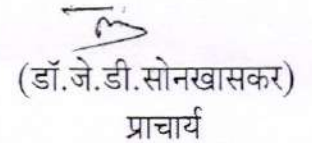 (डॉ.जे.डी.सोनखासकर)
प्राचार्य